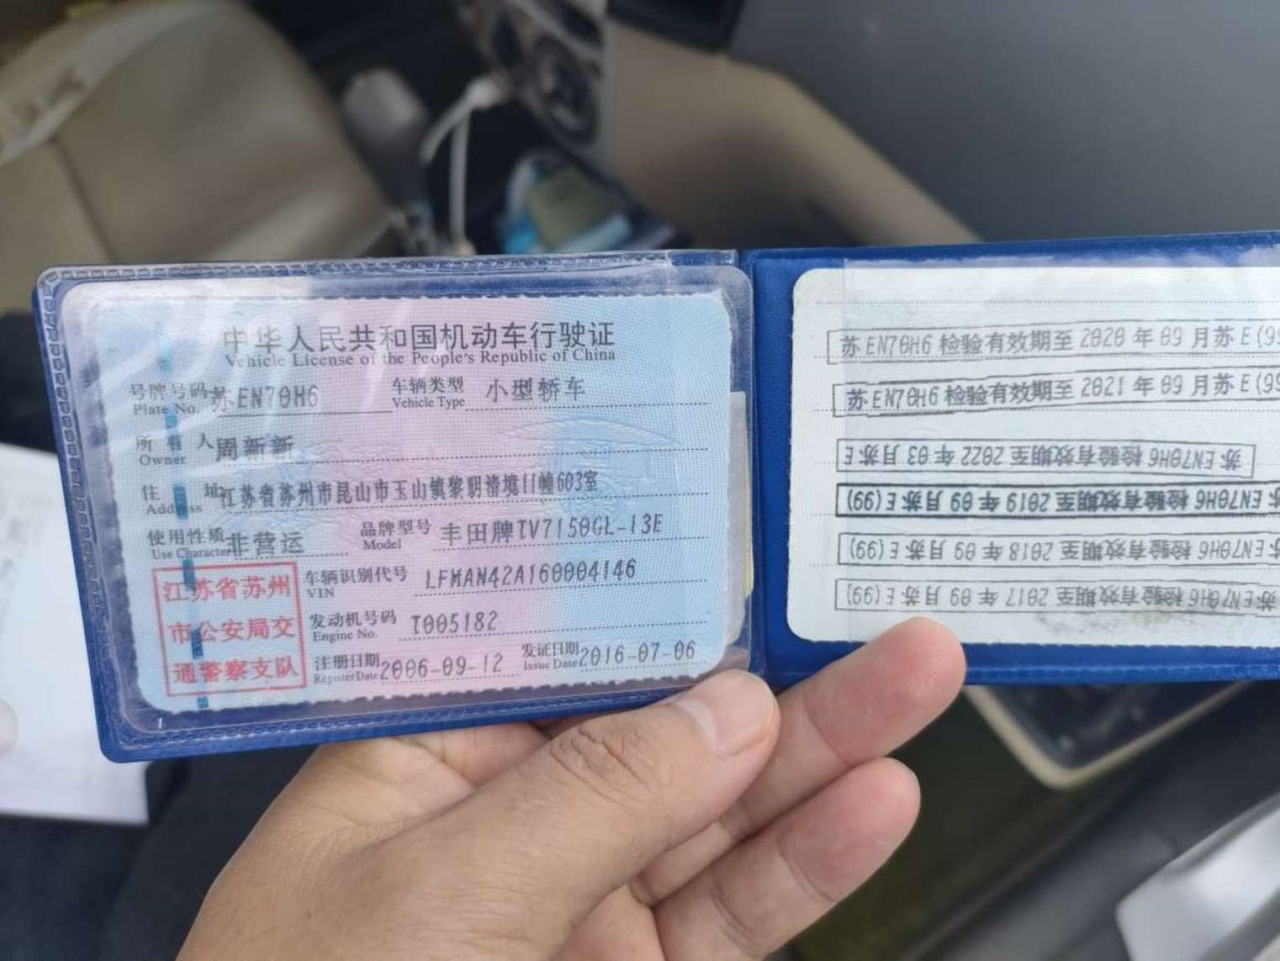 中华人民共和国机动车行驶证
Vehicle License of the People's Republic of China
号牌号码 苏EN70H6 车辆类型 小型轿车
Plate No. Vehicle Type
所有人 周新新
Owner
住址 江苏省苏州市昆山市玉山镇黎明清境11幢603室
Address
使用性质 非营运 品牌型号 丰田牌TV7150GL-I3E
Use Character Model
江苏省苏州
市公安局交
通警察支队
车辆识别代号 LFMAN42A160004146
VIN
发动机号码 T005182
Engine No.
注册日期 2006-09-12 发证日期 2016-07-06
Register Date Issue Date
苏EN70H6 检验有效期至 2020 年 09 月苏 E (99
苏EN70H6 检验有效期至 2021 年 09 月苏 E (99
苏 EN70H6 检验有效期至 2022 年 03 月苏 E
苏EN70H6 检验有效期至 2019 年 09 月苏E(99)
苏EN70H6 检验有效期至 2018 年 09 月苏 E (99)
苏EN70H6 检验有效期至 2017 年 09 月苏 E (99)